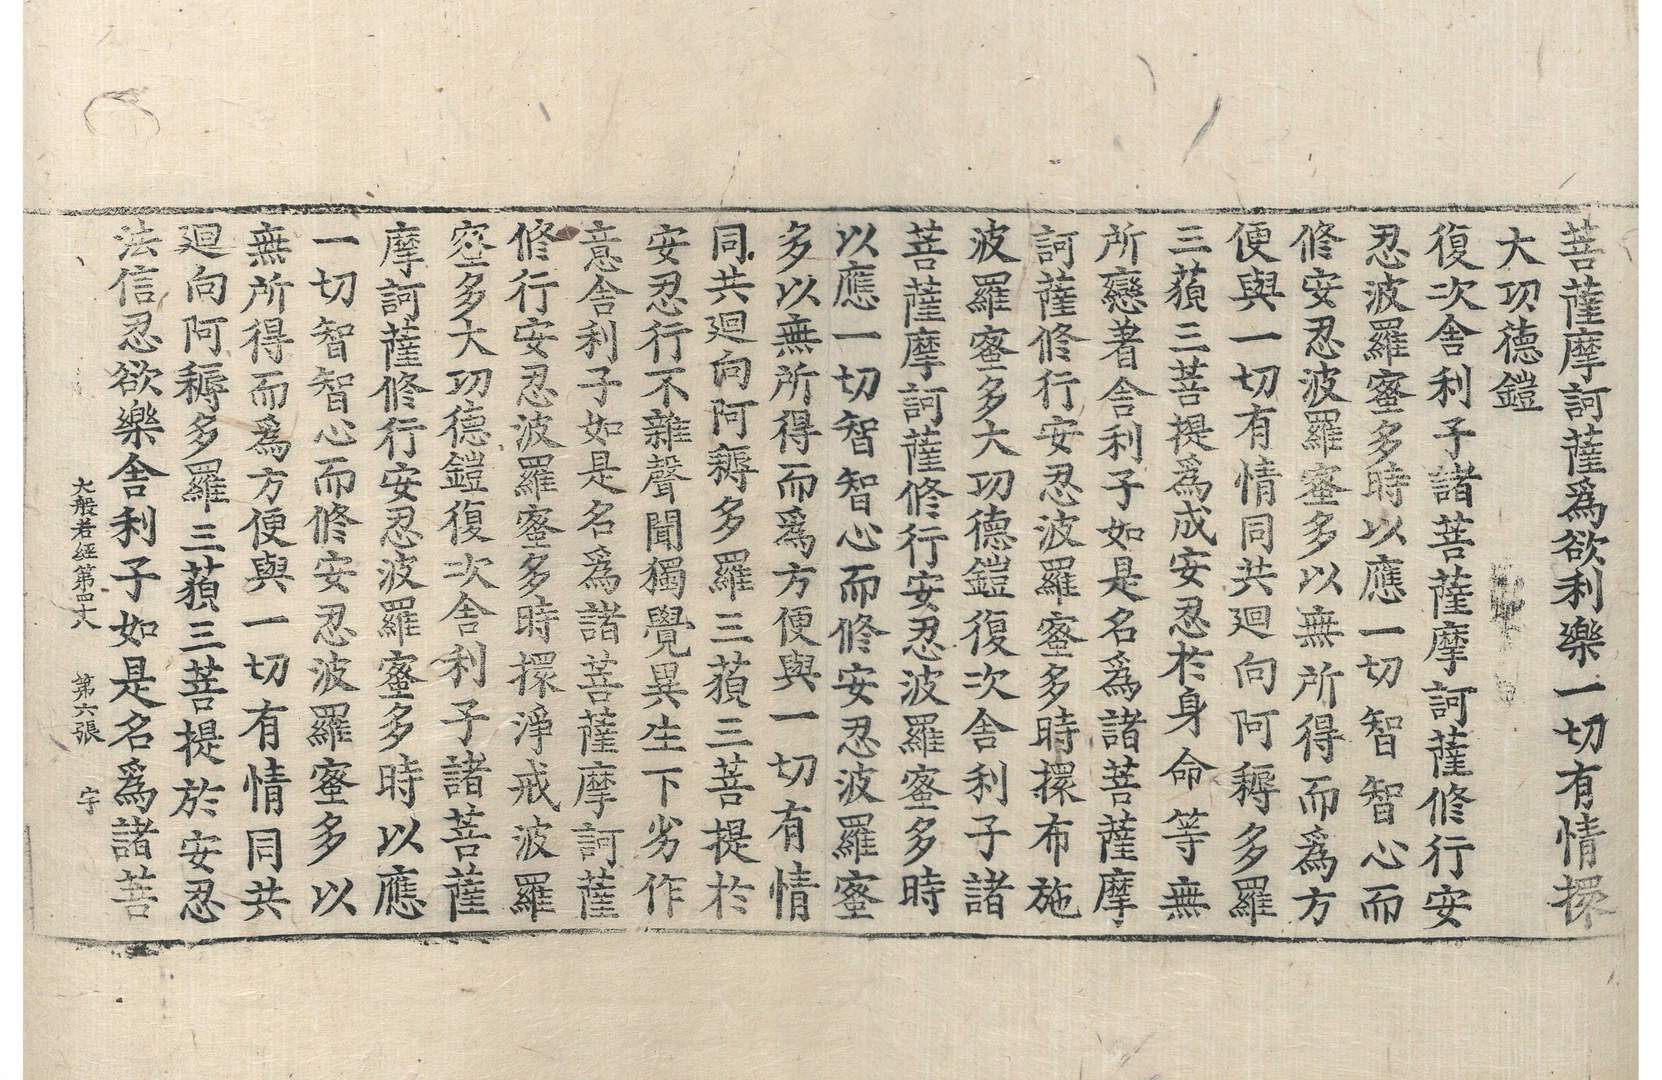 菩薩摩訶薩爲欲利樂一切有情擐
大功德鎧
復次舍利子諸菩薩摩訶薩修行安
忍波羅蜜多時以應一切智智心而
修安忍波羅蜜多以無所得而爲方
便與一切有情同共廻向阿耨多羅
三藐三菩提爲成安忍於身命等無
所戀著舍利子如是名爲諸菩薩摩
訶薩修行安忍波羅蜜多時擐布施
波羅蜜多大功德鎧復次舍利子諸
菩薩摩訶薩修行安忍波羅蜜多時
以應一切智智心而修安忍波羅蜜
多以無所得而爲方便與一切有情
同共廻向阿耨多羅三藐三菩提於
安忍行不雜聲聞獨覺異生下劣作
意舍利子如是名爲諸菩薩摩訶薩
修行安忍波羅蜜多時擐淨戒波羅
蜜多大功德鎧復次舍利子諸菩薩
摩訶薩修行安忍波羅蜜多時以應
一切智智心而修安忍波羅蜜多以
無所得而爲方便與一切有情同共
廻向阿耨多羅三藐三菩提於安忍
法信忍欲樂舍利子如是名爲諸菩
大般若経第四十八 第六張 宇